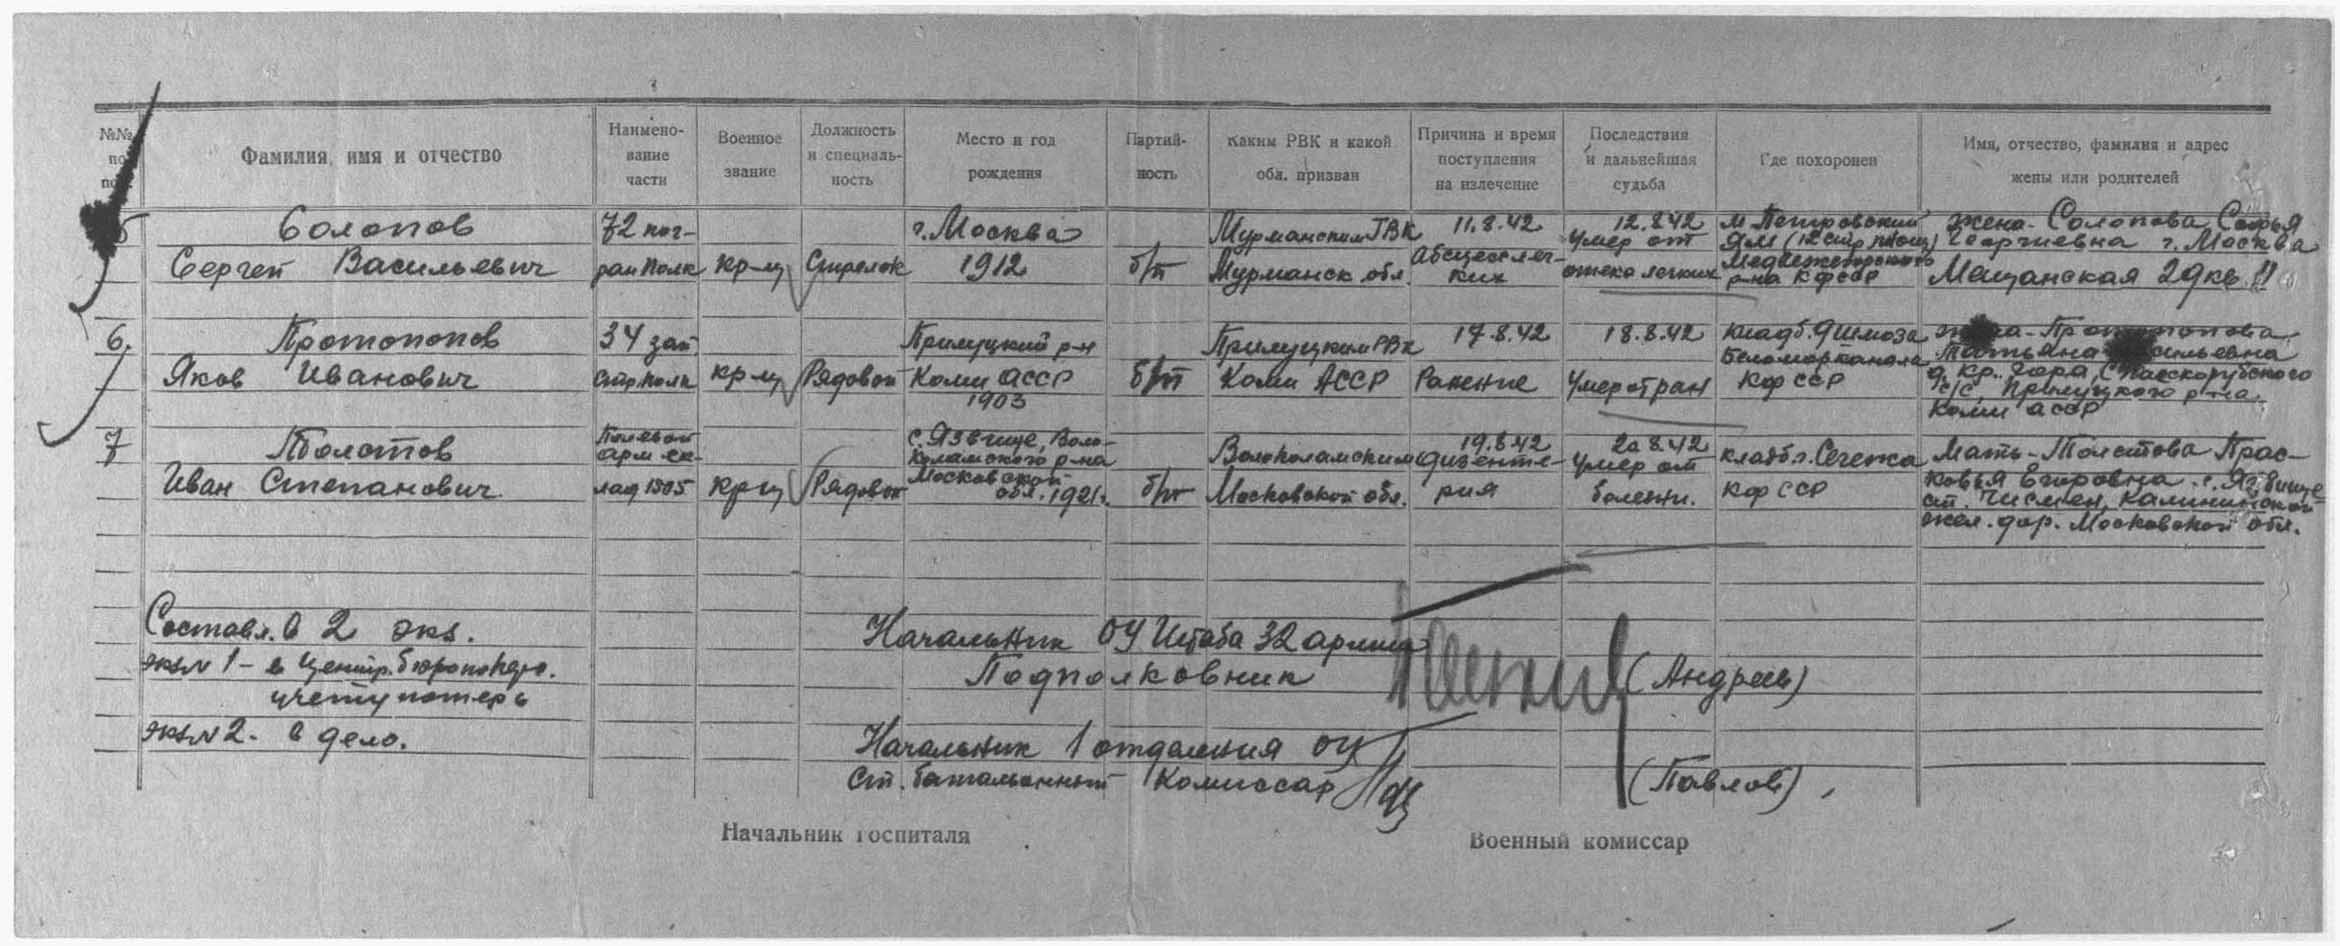 №№ по пор.
Фамилия, имя и отчество
Наимено-
вание
части
Военное
звание
Должность
и специаль-
ность
Место и год
рождения
Партий-
ность
Каким РВК и какой
обл. призван
Причина и время
поступления
на излечение
Последствия
и дальнейшая
судьба
Где похоронен
Имя, отчество, фамилия и адрес
жены или родителей
5
Солопов
Сергей Васильевич
72 пог-
ран полк
кр-ц
Стрелок
г. Москва
1912
б/п
Мурманским ГВК
Мурманск. обл.
11.8.42
Абсцесс лег-
ких
12.8.42
Умер от
отека легких
м. Петровский
Ям
Медвежегорского
р-на КФССР
жена - Солопова Софья
Георгиевна г. Москва
Мещанская 2 9 кв. 11
6.
Протопопов
Яков Иванович
34 зап.
стр полк
кр-ц
Рядовой
Прилуцкий р-н
Коми АССР
1903
б/п
Прилуцким РВК
Коми АССР
17.8.42
Ранение
18.8.42
Умер от ран
кладб. 9 шлюза
Беломорканала
КФССР
жена - Протопопова
Татьяна
д. Кр. гора,
с/с, Прилуцкого р-на
Коми АССР
7
Толстов
Иван Степанович
Полевой
арм. ск-
лад 1505
кр-ц
Рядовой
с. Язвище, Воло-
коламского р-на
Московской
обл. 1921.
б/п
Волоколамским
Московской обл.
19.8.42
дизенте-
рия
20.8.42
Умер от
болезни.
кладб. г. Сегежа
КФССР
Мать - Толстова Прас-
ковья Егоровна. с. Язвище
ст. Чисмен, Калининской
жел. дор. Московской обл.
Составл. в 2 экз.
экз N 1 - в Центр. бюро по перс.
учету потерь
экз N 2. в дело.
Начальник ОУ Штаба 32 армии
Подполковник
(Андреев)
Начальник 1 отделения ОУ
Ст. батальонный Комиссар
(Павлов)
Начальник госпиталя
Военный комиссар